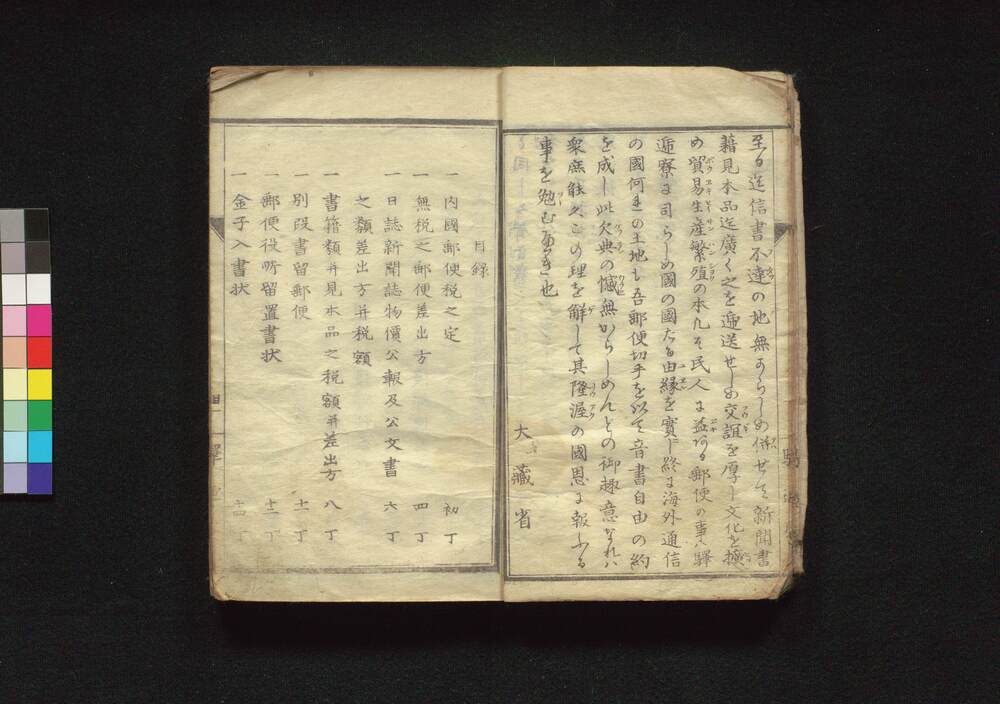 至る迄信書不達の地無からしめ併せて新聞書
籍見本品迄廣く之を逓送せしめ交誼を厚し文化を擴
め貿易生産繁殖の本凡そ民人に益ある郵便の事ハ驛
逓寮に司らしめ國の國たる由縁を實し終に海外通信
の國何連の土地も吾郵便切手を以て音書自由の約
を成し此欠典の憾無からしめんとの御趣意なれハ
衆庶能久この理を解して其隆渥の國恩に報ふる
事を勉むべき也
大藏省
目録
一 内國郵便税之定 初丁
一 無税之郵便差出方 四丁
一 日誌新聞誌物價公報及公文書
之類差出方并税額 六丁
一 書籍類并見本品之税額并差出方 八丁
一 別段書留郵便 十一丁
一 郵便役所留置書状 十二丁
一 金子入書状 十四丁